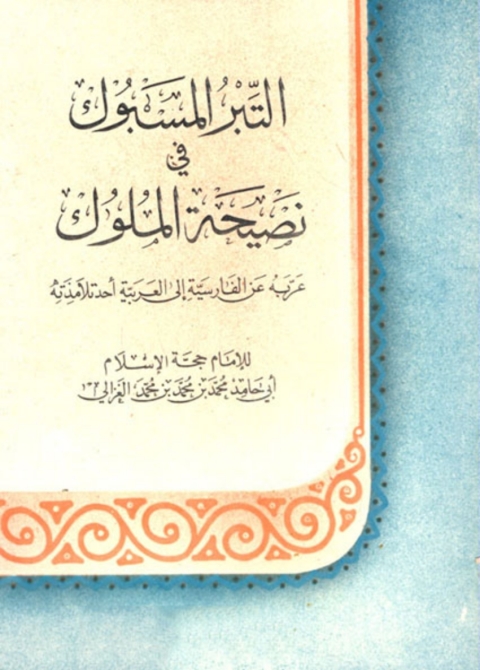 التِّبْرُ المَسْبُوك
في
نَصِيحَةِ المُلُوك
عَرَّبَهُ عَنِ الفَارِسِيَّةِ إِلَى العَرَبِيَّةِ أَحَدُ تَلَامِذَتِهِ
للإمَام حجَّة الإسْلَام
أبي حَامِد مُحَمَّد بن مُحَمَّد بن مُحَمَّد الغَزالي